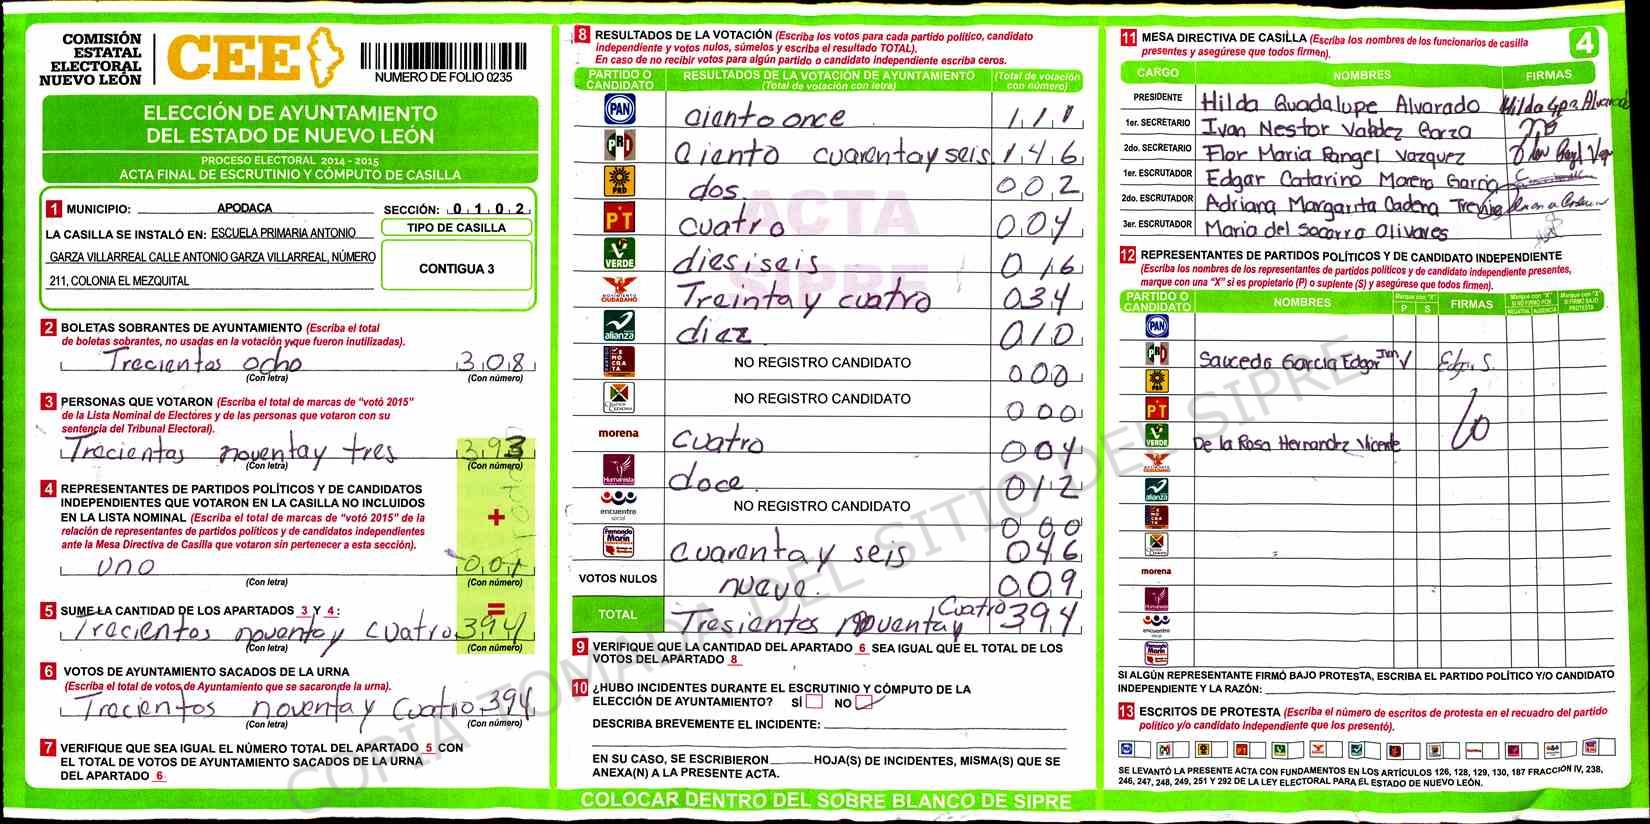 COMISIÓN
ESTATAL
ELECTORAL
NUEVO LEÓN
CEE
NUMERO DE FOLIO 0235
ELECCIÓN DE AYUNTAMIENTO
DEL ESTADO DE NUEVO LEÓN
PROCESO ELECTORAL 2014 - 2015
ACTA FINAL DE ESCRUTINIO Y CÓMPUTO DE CASILLA
1 MUNICIPIO: APODACA SECCIÓN: 0102
LA CASILLA SE INSTALÓ EN: ESCUELA PRIMARIA ANTONIO
GARZA VILLARREAL CALLE ANTONIO GARZA VILLARREAL, NÚMERO
211, COLONIA EL MEZQUITAL
TIPO DE CASILLA
CONTIGUA 3
2 BOLETAS SOBRANTES DE AYUNTAMIENTO (Escriba el total
de boletas sobrantes, no usadas en la votación yque fueron inutilizadas).
Trecientos ocho 308
(Con letra) (Con número)
3 PERSONAS QUE VOTARON (Escriba el total de marcas de “votó 2015”
de la Lista Nominal de Electores y de las personas que votaron con su
sentencia del Tribunal Electoral).
Trecientos noventay tres 393
(Con letra) (Con número)
4 REPRESENTANTES DE PARTIDOS POLÍTICOS Y DE CANDIDATOS
INDEPENDIENTES QUE VOTARON EN LA CASILLA NO INCLUIDOS
EN LA LISTA NOMINAL (Escriba el total de marcas de “votó 2015” de la
relación de representantes de partidos políticos y de candidatos independientes
ante la Mesa Directiva de Casilla que votaron sin pertenecer a esta sección).
+
uno 001
(Con letra) (Con número)
5 SUME LA CANTIDAD DE LOS APARTADOS 3 Y 4: =
Trecientos noventay cuatro 394
(Con letra) (Con número)
6 VOTOS DE AYUNTAMIENTO SACADOS DE LA URNA
(Escriba el total de votos de Ayuntamiento que se sacaron de la urna).
Trecientos noventay cuatro 394
(Con letra) (Con número)
7 VERIFIQUE QUE SEA IGUAL EL NÚMERO TOTAL DEL APARTADO 5 CON
EL TOTAL DE VOTOS DE AYUNTAMIENTO SACADOS DE LA URNA
DEL APARTADO 6
8 RESULTADOS DE LA VOTACIÓN (Escriba los votos para cada partido político, candidato
independiente y votos nulos, súmelos y escriba el resultado TOTAL).
En caso de no recibir votos para algún partido o candidato independiente escriba ceros.
PARTIDO O CANDIDATO RESULTADOS DE LA VOTACIÓN DE AYUNTAMIENTO (Total de votación con letra) (Total de votación con número)
PAN ciento once 111
PRI ciento cuarentayseis 146
PRD dos 002
PT cuatro 004
VERDE diesiseis 016
MOVIMIENTO CIUDADANO Treinta y cuatro 034
alianza diez 010
DEMOCRATA NO REGISTRO CANDIDATO 000
NO REGISTRO CANDIDATO 000
morena cuatro 004
Humanista doce 012
encuentro social NO REGISTRO CANDIDATO 000
Fernando Marín cuarenta y seis 046
VOTOS NULOS nueve 009
TOTAL Tresientos noventay cuatro 394
ACTA
SIPRE
9 VERIFIQUE QUE LA CANTIDAD DEL APARTADO 6 SEA IGUAL QUE EL TOTAL DE LOS
VOTOS DEL APARTADO 8
10 ¿HUBO INCIDENTES DURANTE EL ESCRUTINIO Y CÓMPUTO DE LA
ELECCIÓN DE AYUNTAMIENTO? SÍ NO
DESCRIBA BREVEMENTE EL INCIDENTE:
EN SU CASO, SE ESCRIBIERON HOJA(S) DE INCIDENTES, MISMA(S) QUE SE
ANEXA(N) A LA PRESENTE ACTA.
COLOCAR DENTRO DEL SOBRE BLANCO DE SIPRE
11 MESA DIRECTIVA DE CASILLA (Escriba los nombres de los funcionarios de casilla
presentes y asegúrese que todos firmen).
4
CARGO NOMBRES FIRMAS
PRESIDENTE Hilda Guadalupe Alvarado Hilda Gpe Alvarado
1er. SECRETARIO Ivan Nestor Valdez Garza
2do. SECRETARIO Flor Maria Rangel Vazquez
1er. ESCRUTADOR Edgar Catarino Moreno Garcia
2do. ESCRUTADOR Adriana Margarita Cadena Treviño
3er. ESCRUTADOR Maria del Socorro Olivares
12 REPRESENTANTES DE PARTIDOS POLÍTICOS Y DE CANDIDATO INDEPENDIENTE
(Escriba los nombres de los representantes de partidos políticos y de candidato independiente presentes,
marque con una “X” si es propietario (P) o suplente (S) y asegúrese que todos firmen).
PARTIDO O CANDIDATO NOMBRES Marque con “X” P S FIRMAS Marque con “X” SI NO FIRMÓ POR NEGATIVA AUSENCIA Marque con “X” SI FIRMÓ BAJO PROTESTA
PAN
PRI Saucedo García Edgar Ivan Edgr. S.
PRD
PT
VERDE De la Rosa Hernandrz Vicente
MOVIMIENTO CIUDADANO
alianza
DEMOCRATA
morena
Humanista
encuentro social
Marín
SI ALGÚN REPRESENTANTE FIRMÓ BAJO PROTESTA, ESCRIBA EL PARTIDO POLÍTICO Y/O CANDIDATO
INDEPENDIENTE Y LA RAZÓN:
13 ESCRITOS DE PROTESTA (Escriba el número de escritos de protesta en el recuadro del partido
político y/o candidato independiente que los presentó).
SE LEVANTÓ LA PRESENTE ACTA CON FUNDAMENTOS EN LOS ARTÍCULOS 126, 128, 129, 130, 187 FRACCIÓN IV, 238,
246, 247, 248, 249, 251 Y 292 DE LA LEY ELECTORAL PARA EL ESTADO DE NUEVO LEÓN.
COPIA TOMADA DEL SITIO DEL SIPRE